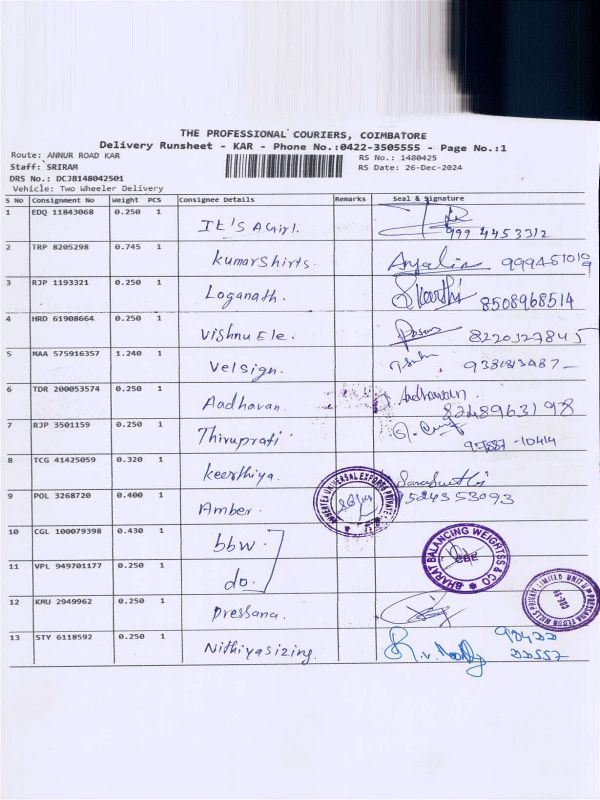 THE PROFESSIONAL COURIERS, COIMBATORE
Delivery Runsheet - KAR - Phone No.:0422-3505555 - Page No.:1
Route: ANNUR ROAD KAR RS No.: 1480425
Staff: SRIRAM RS Date: 26-Dec-2024
DRS No.: DCJB148042501
Vehicle: Two Wheeler Delivery
S No Consignment No Weight PCS Consignee Details Remarks Seal & Signature
1 EDQ 11843068 0.250 1 It's A Girl.
999 4453312
2 TRP 8205298 0.745 1 kumarshirts. Anjalia
3 RJP 1193321 0.250 1 Loganath. 8508968514
4 HRD 61908664 0.250 1 Vishnu Ele. 8220327845
5 MAA 575916357 1.240 1 Velsign.
6 TDR 200053574 0.250 1 Aadhavan. Aadhavan.
8248963198
7 RJP 3501159 0.250 1 Thiruprati.
8 TCG 41425059 0.320 1 keerthiya.
9 POL 3268720 0.400 1 Amber. UNIVERSAL EXPORTS PRIVATE
10 CGL 100079398 0.430 1 bbw.
BHARAT BALANCING WEIGHTSS & CO
CBE
11 VPL 949701177 0.250 1 do.
12 KMU 2949962 0.250 1 pressana. MILLS PRIVATE LIMITED UNIT II
13 STY 6118592 0.250 1 Nithiyasizing.